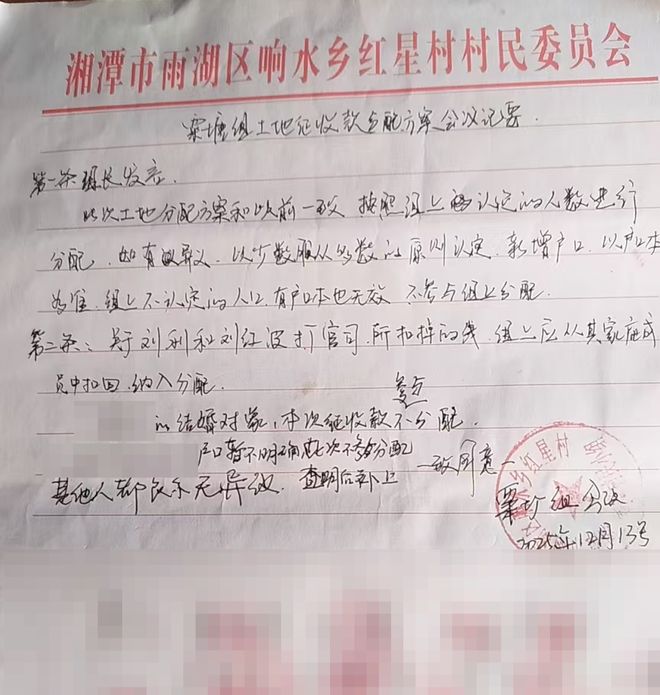 湘潭市雨湖区响水乡红星村村民委员会
栗塘组土地征收款分配方案会议记要.
第一条组长发言.
此次土地分配方案和以前一致 按照组上认定的人数进行
分配.如有异议.以少数服从多数的原则认定.新增户口.以户口本
为准.组上不认定的人口.有户口本也无效 不参与组上分配.
第二条:关于刘利和刘红波打官司.所扣掉的钱.组上应从其家庭成
员中扣回.纳入分配.
参与
的结婚对象.本次征收款不分配.
户口暂不明确此次不参与分配
其他人都表示无异议. 查明后补上 一致同意
红星村
组会议.
2025年12月13号